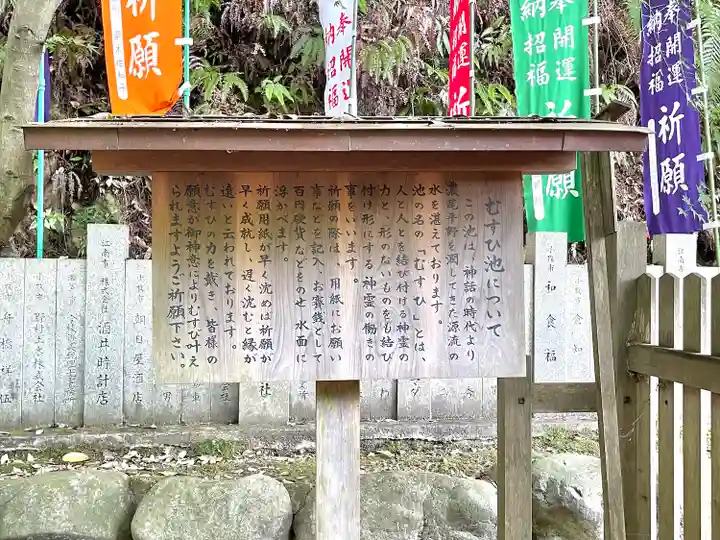 むすひ池について
この池は、神話の時代より
濃尾平野を潤してきた源流の
水を湛えております。
池の名の「むすひ」とは、
人と人とを結び付ける神霊の
力と、形のないものをも結び
付け形にする神霊の働きの
事をいいます。
祈願の際は、用紙にお願い
事などを記入、お賽銭として
百円硬貨などをのせ、水面に
浮かべます。
祈願用紙が早く沈めば祈願か
早く成就し、遅く沈むと縁が
遠いと云われております。
むすひの力を戴き、皆様の
願意が御神意によりむすび叶え
られますようご祈願下さい。
祈願
奉納
招福
祈
奉 開運
納 招福
祈願
奉 開運
納 招福
祈願
江南市
株式会社 酒井時計店
小牧市
朝日屋酒店
小牧市
和食 福
江南市